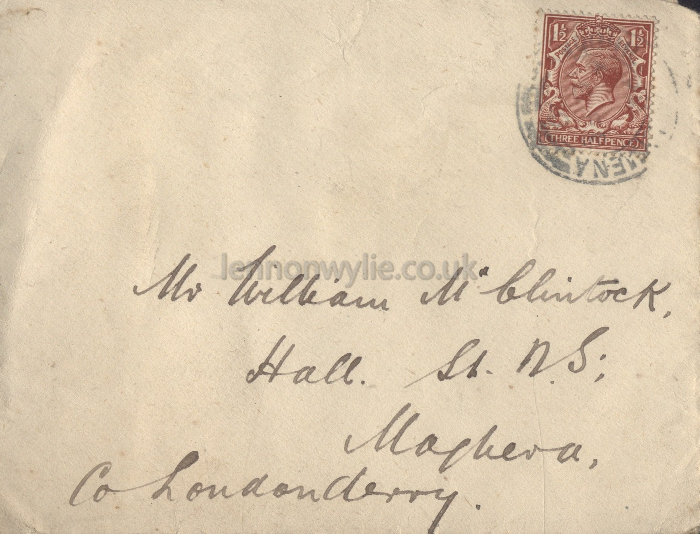 1½ 1½
POSTAGE REVENUE
THREE HALFPENCE
MENA
lennonwylie.co.uk
Mr William Mc Clintock,
Hall. St. N. S;
Maghera,
Co Londonderry.